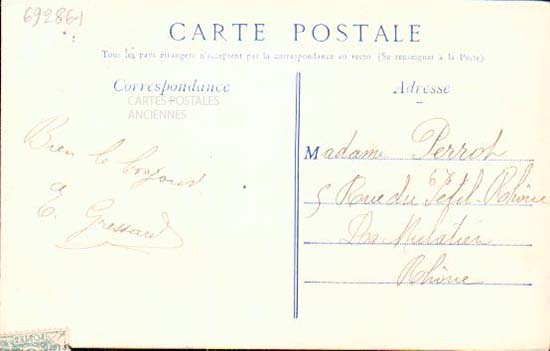 692861
CARTE POSTALE
Tous les pays étrangers n'acceptent pas la correspondance au recto. (Se renseigner à la Poste).
Correspondance
CARTES POSTALES
ANCIENNES
Bien le bonjour
E. Gressard
Adresse
Madame Perrot
5 Rue du Petit-Rhône
La Mulatière
Rhône
POSTES